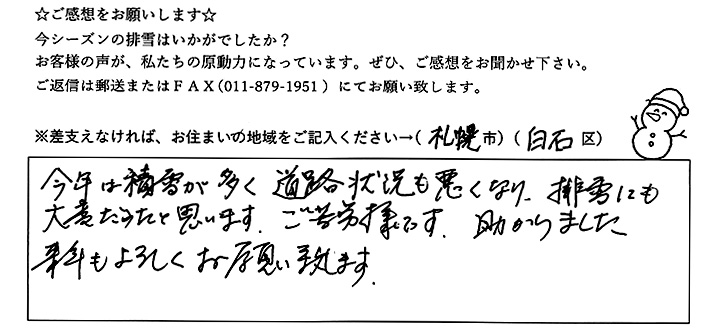 ☆ご感想をお願いします☆
今シーズンの排雪はいかがでしたか？
お客様の声が、私たちの原動力になっています。ぜひ、ご感想をお聞かせ下さい。
ご返信は郵送またはＦＡＸ（011-879-1951）にてお願い致します。
※差支えなければ、お住まいの地域をご記入ください→（ 札幌 市）（ 白石 区）
今年は積雪が多く 道路状況も悪くなり、排雪にも
大変だったと思います。ご苦労様です。助かりました
来年もよろしくお願い致します。